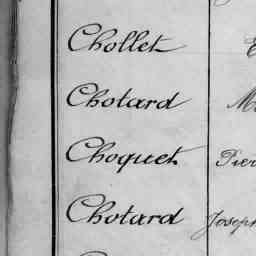 Chollet
Chotard
Choquet Pier
Chotard Joseph